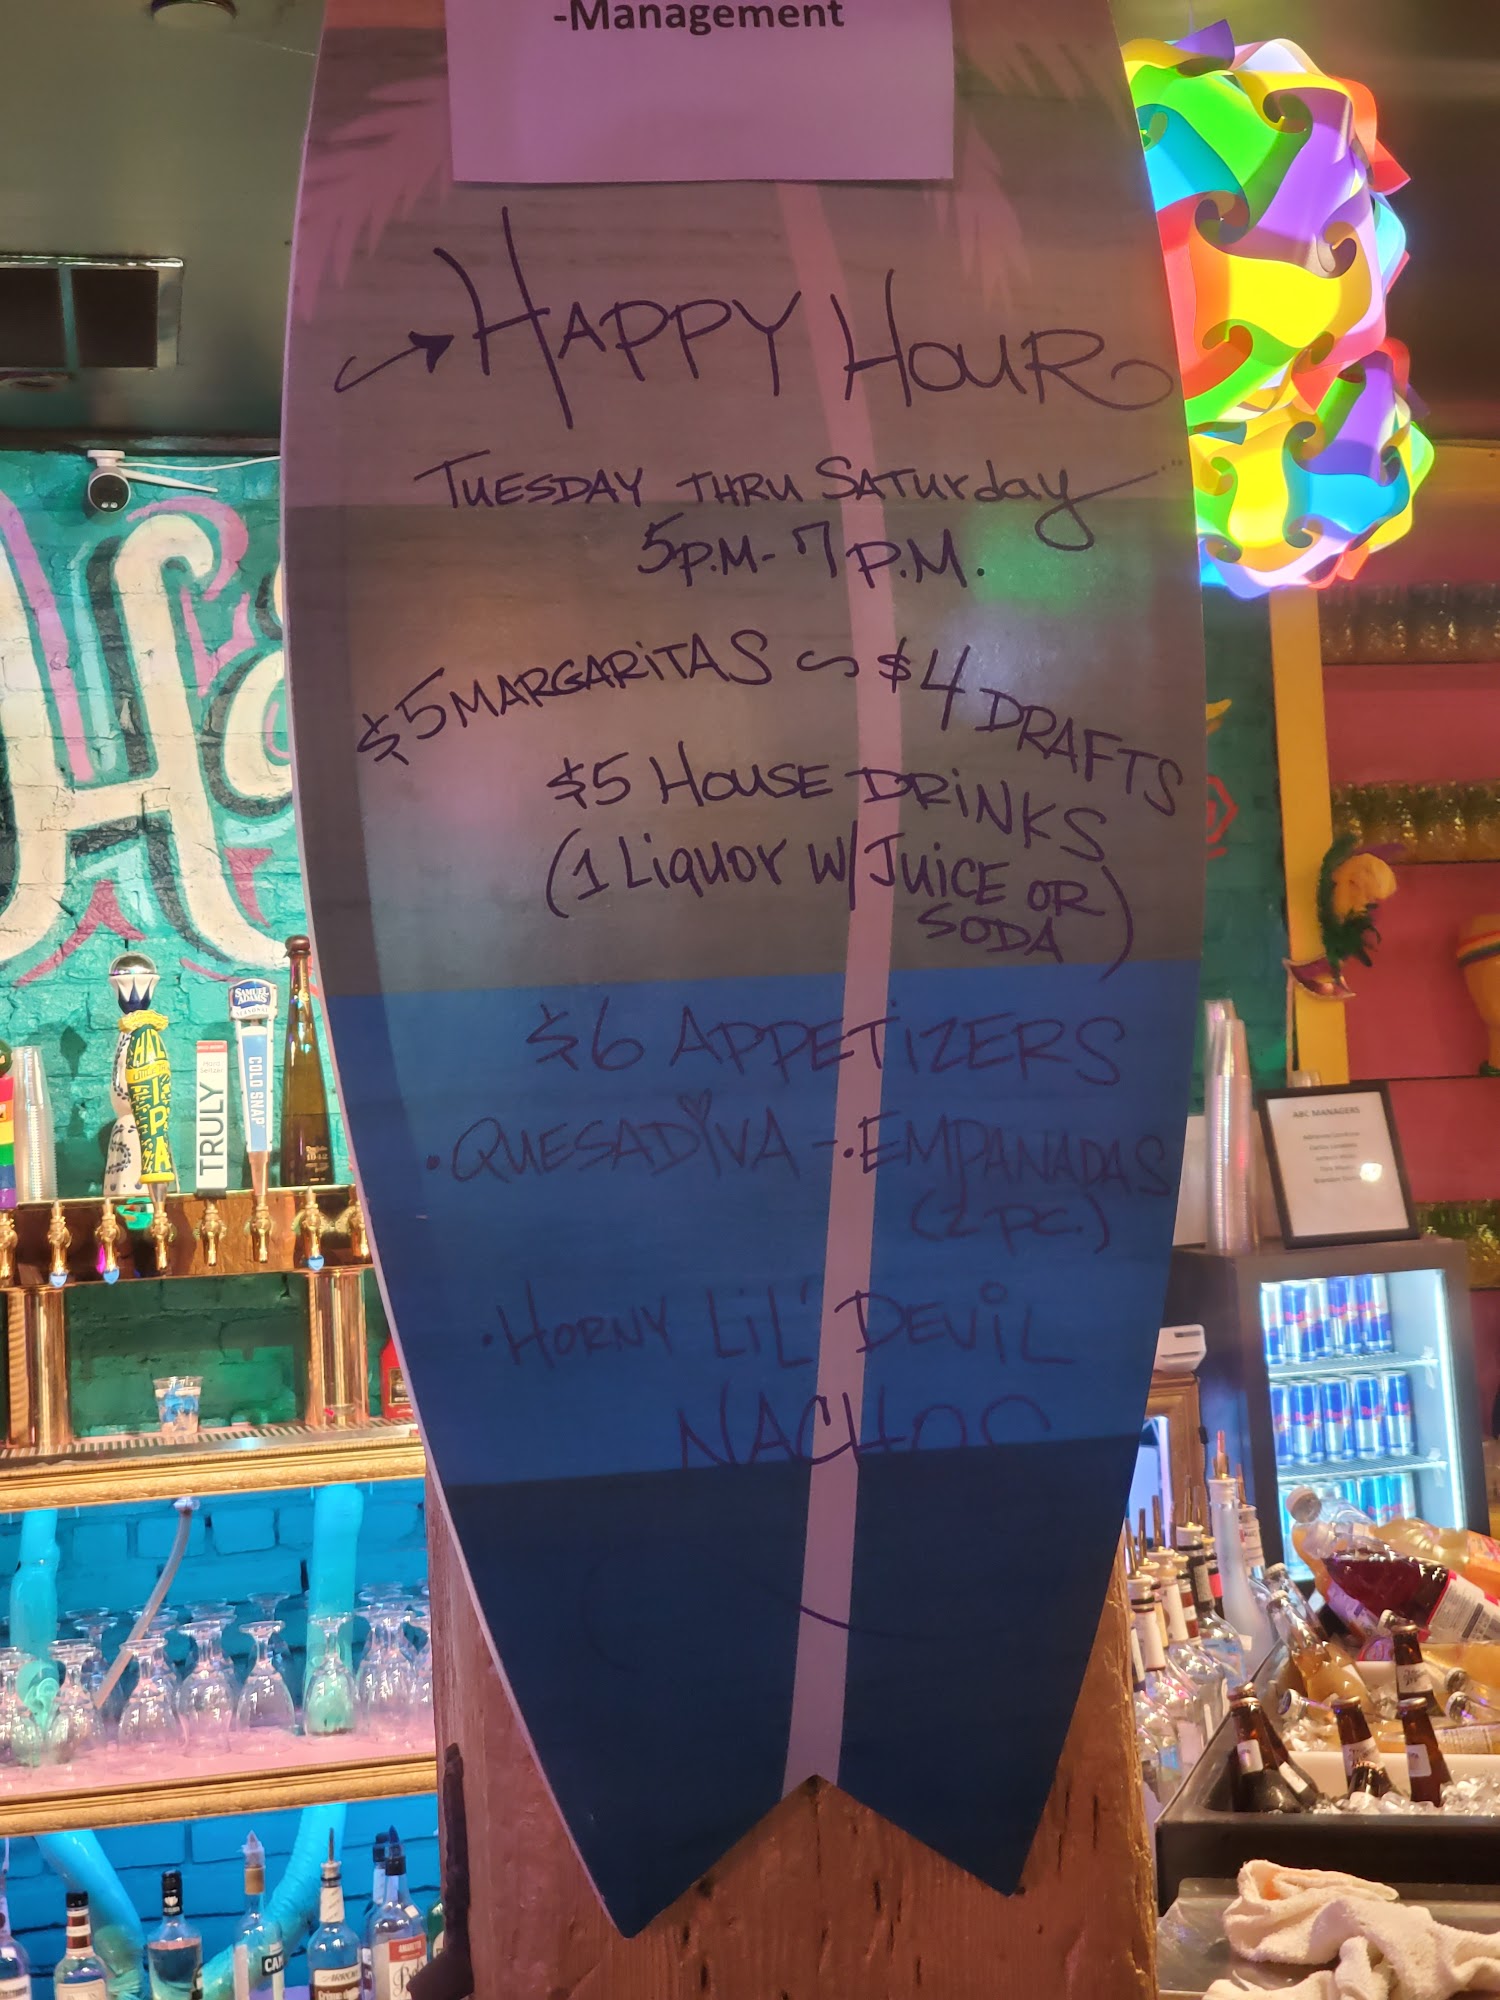 -Management
HAPPY HOUR
TUESDAY THRU SATURday
5P.M- 7P.M.
$5 MARGARiTAS ~ $4 DRAFTS
$5 HOUSE DRiNKS
(1 LiquOr W/ JUiCE OR
SODA)
$6 APPETiZERS
· QUESADiVA - · EMPANADAS
(2 PC.)
· HORNY LiL' DEViL
NACHOS
SAMUEL ADAMS
SEASONAL
COLD SNAP
TRULY
Hard Seltzer
IPA
ABC MANAGERS